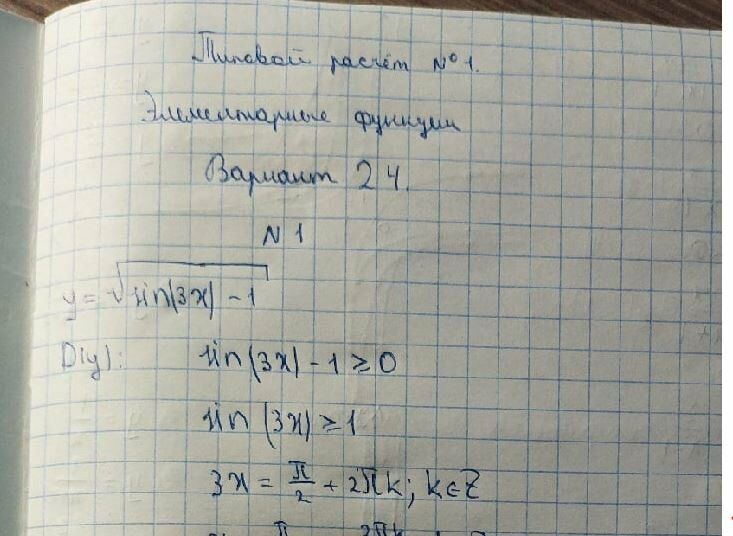 Типовой расчёт № 1.
Элементарные функции
Вариант 24.
N 1
y = √(sin(3x) - 1)
D(y): sin(3x) - 1 ≥ 0
sin(3x) ≥ 1
3x = π/2 + 2πk; k∈Z